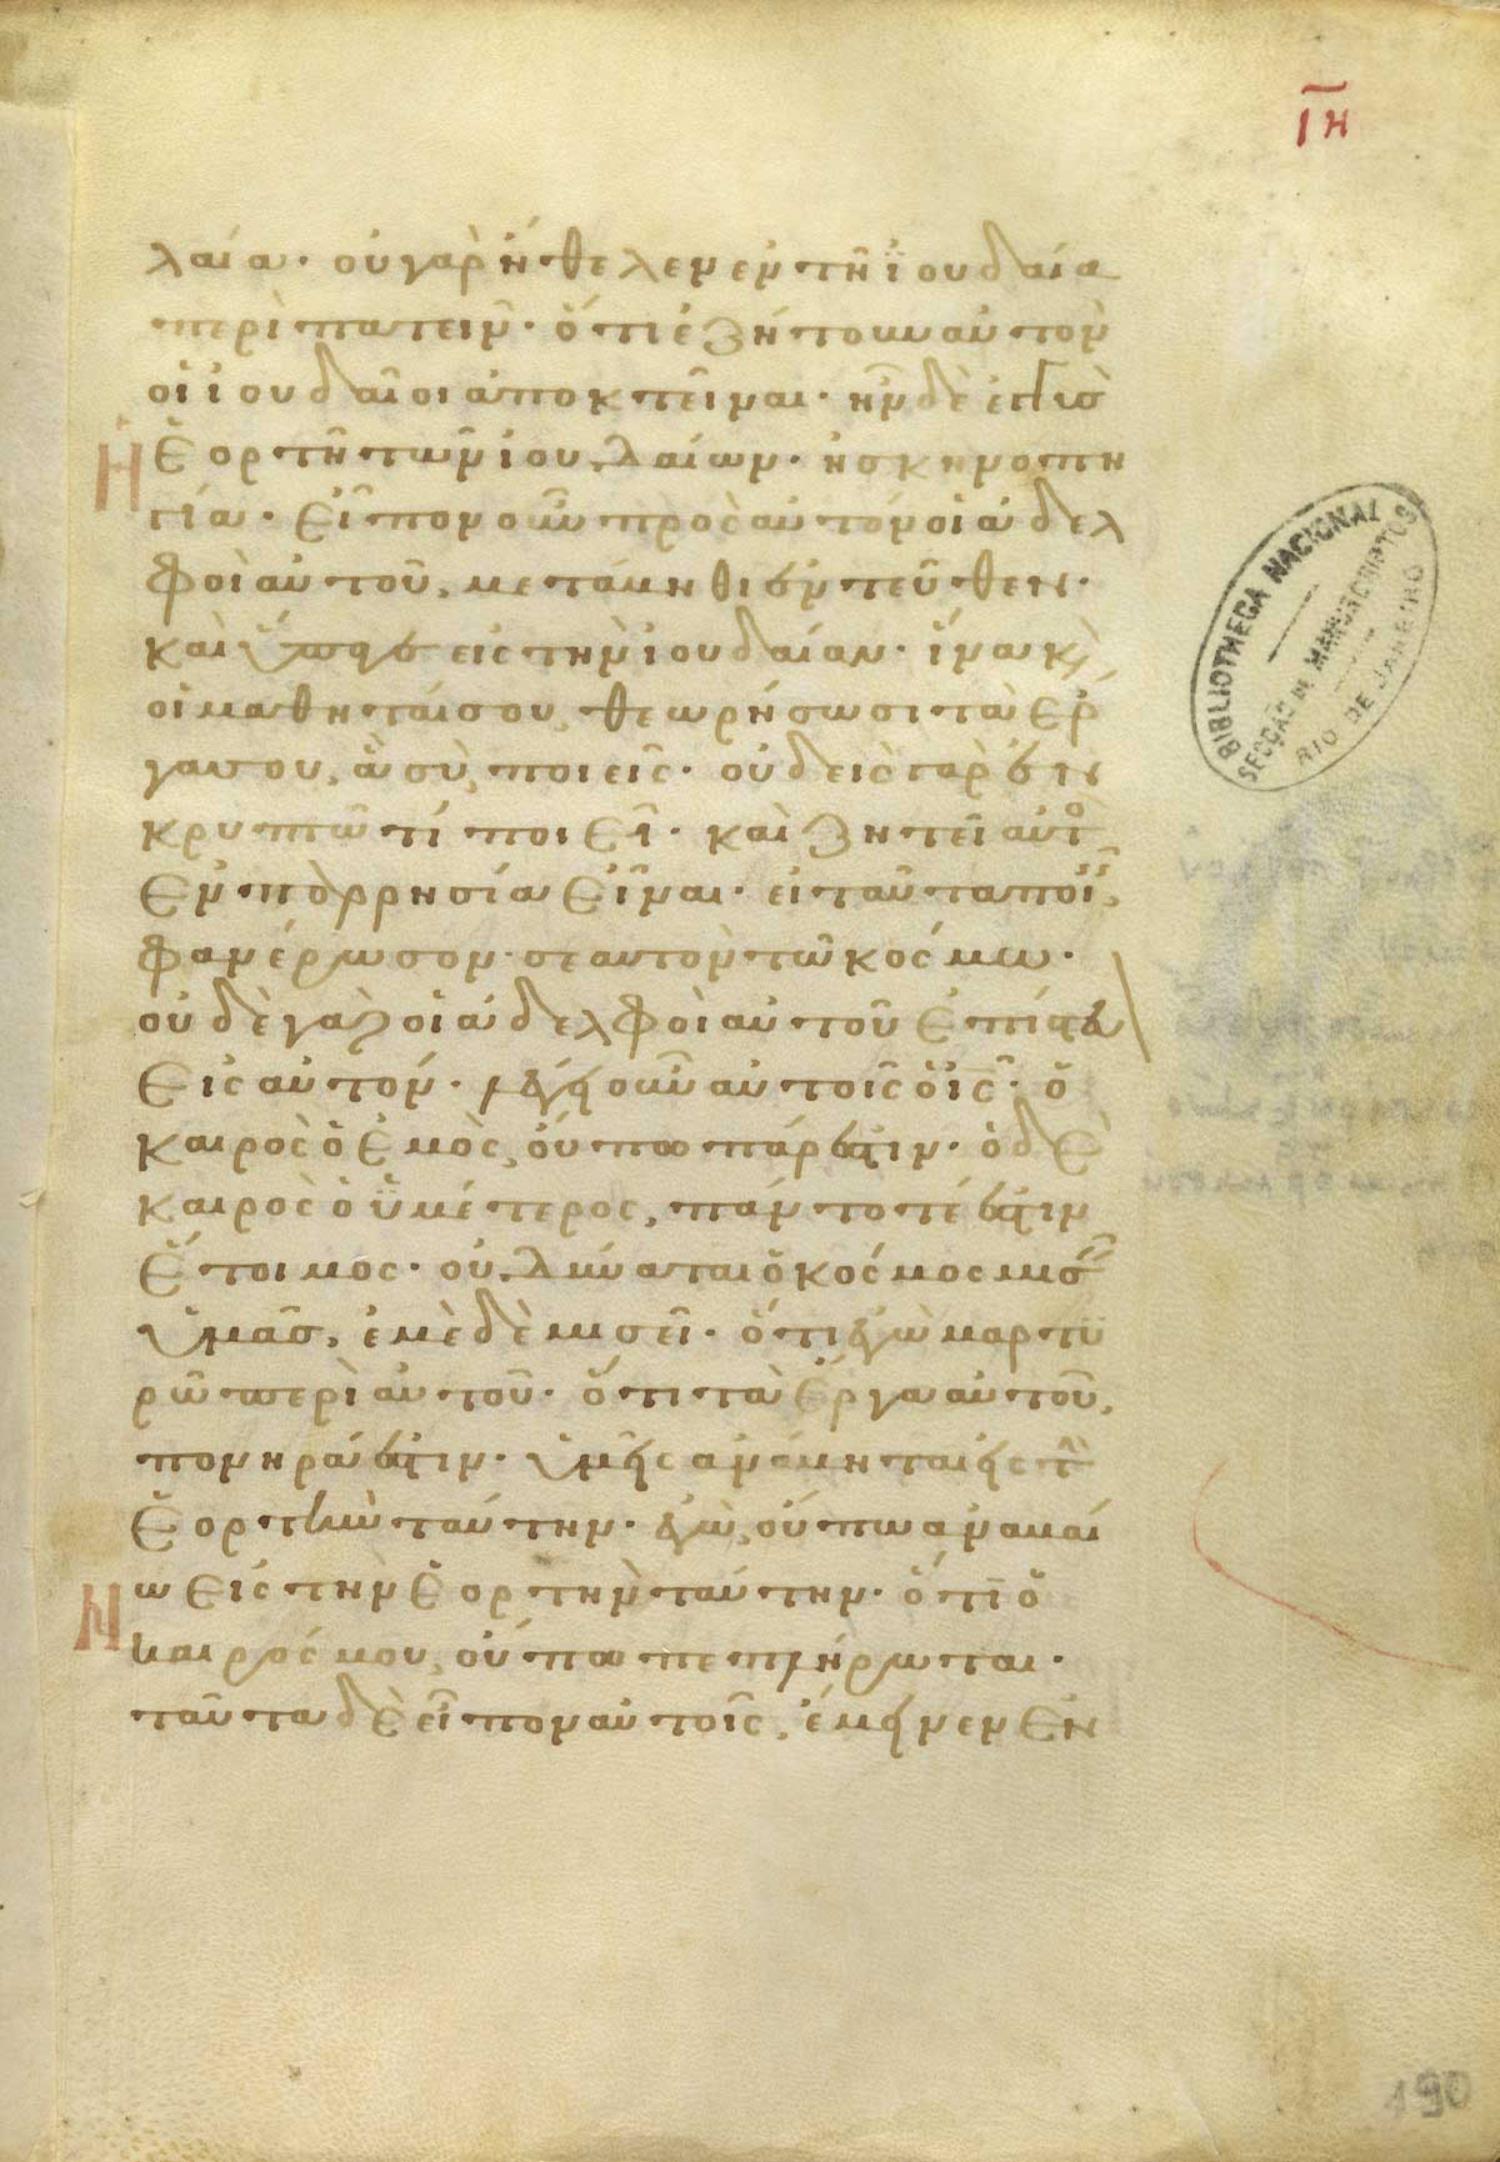 ιη
λαία· οὐ γὰρ ἤθελεν ἐν τῆ ϊουδαία
περὶπατεῖν· ὅτι ἐζήτουν αὐτὸν
οἱ ἰουδαῖοι ἀποκτεῖναι· ἦν δὲ ἐγγὺσ
ἑορτῆ τῶν ἰουδαίων· ἡ σκηνοπη
γία· εἶπον οὖν πρὸς αὐτόν οἱ ἀδελ
φοὶ αὐτοῦ, μετάβηθι ἐντεῦθεν·
καὶ ὕπαγε εἰς τὴν ἰουδαίαν· ἵνα κ
οἱ μαθηταί σου, θεωρήσωσι τὰ ἔρ
γα σου, ἃ σὺ, ποιεῖς· οὐδεὶς γὰρ ἐν
κρυπτῶ τί ποιεῖ· καὶ ζητεῖ αὐτο
ἐν παρρησία εἶναι· εἰ ταῦτα ποῖ,
φανέρωσον σεαυτὸν τῶ κόσμω·
οὐδὲ γὰρ οἱ ἀδελφοὶ αὐτοῦ ἐπίστευ
εἰς αὐτόν· λέγει οὖν αὐτοῖς ὁ ις· ὁ
καιρὸς ὁ ἐμὸς, οὔπω πάρεστιν· ὁ δὲ
καιρὸς ὁ ὑμέτερος, πάντοτέ ἐστιν
ἕτοιμος· οὐ δύναται ὁ κόσμος μισ
ὑμᾶσ, ἐμὲ δὲ μισεῖ· ὅτι ἐγὼ μαρτυ
ρῶ περὶ αὐτοῦ· ὅτι τὰ ἔργα αὐτοῦ,
πονηρά ἐστιν· ὑμεῖς ἀνάβηται εἰς τ
ἑορτὴν ταύτην· ἐγὼ, οὔπω ἀναβαί
ω εἰς τὴν ἑορτὴν ταύτην· ὅτι ὁ
καιρός μου, οὔπω πεπλήρωται·
ταῦτα δὲ εἶπον αὐτοῖς, ἔμεινεν ἐν
BIBLIOTHECA NACIONAL
SECÇÃO DE MANUSCRIPTOS
RIO DE JANEIRO
190